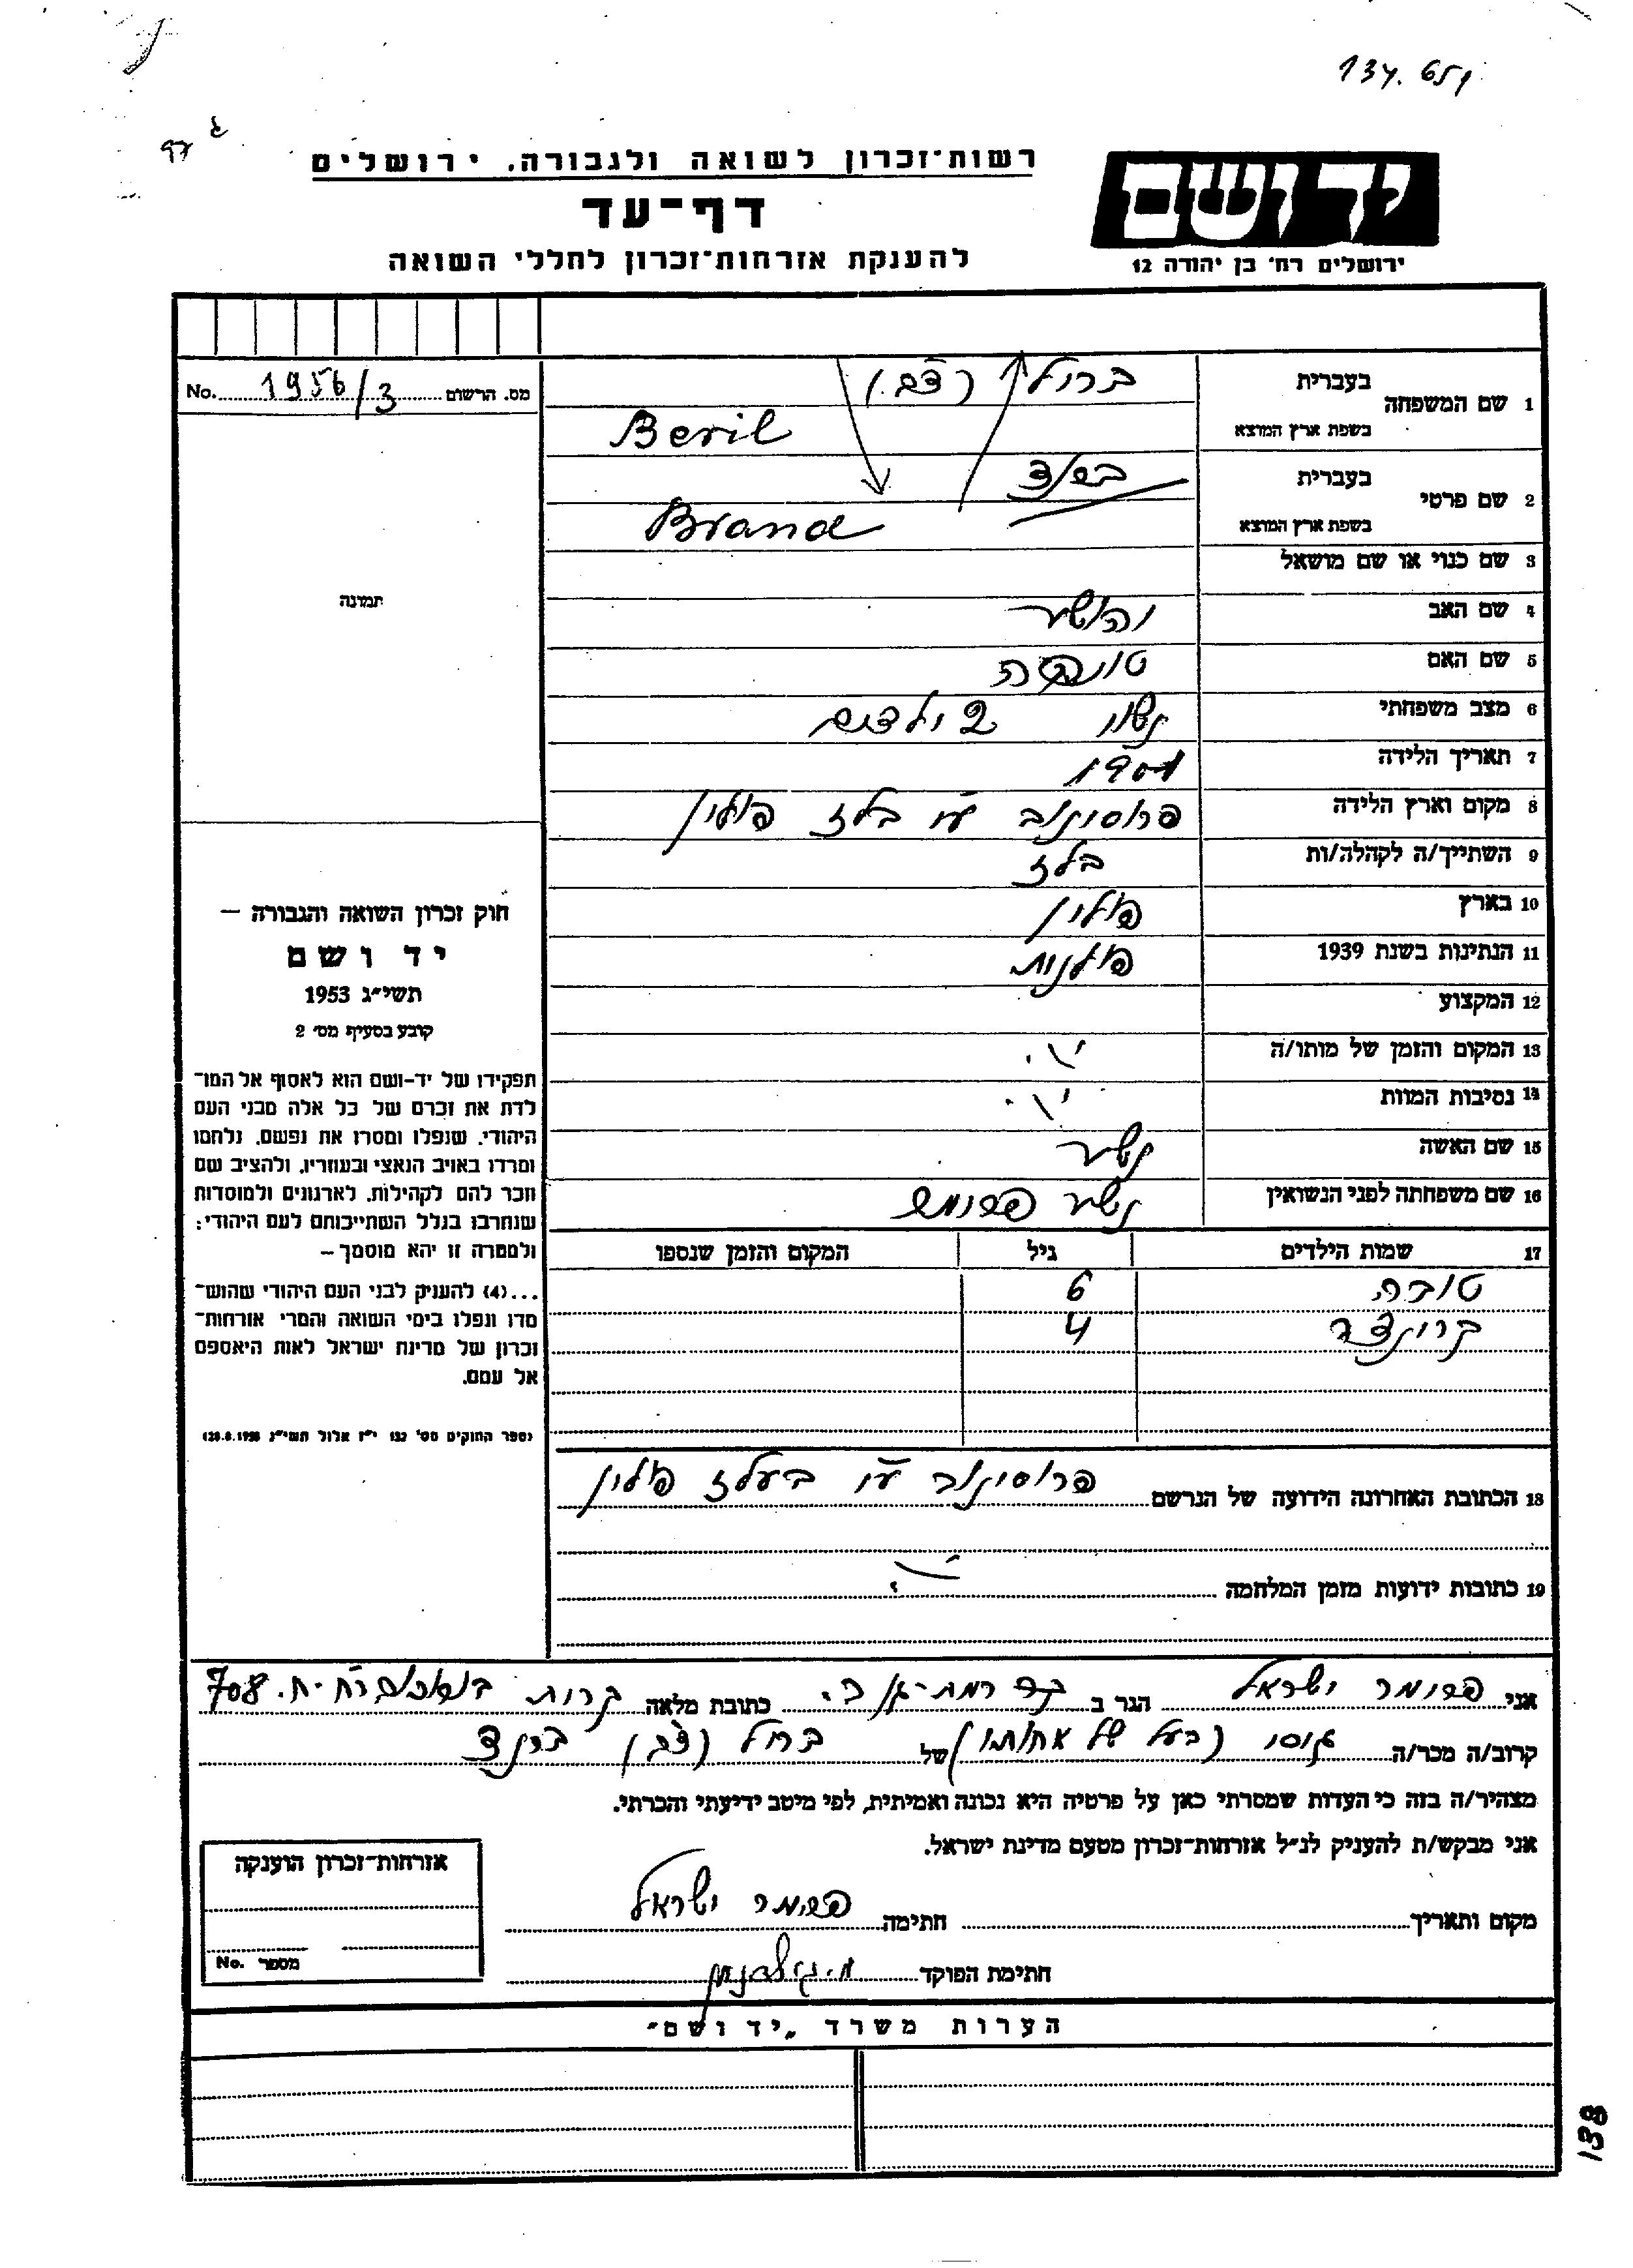 134. 651
97
רשות־זכרון לשואה ולגבורה. ירושלים
דף־עד
להענקת אזרחות־זכרון לחללי השואה
יד ושם
ירושלים רח׳ בן יהודה 12
מס. הרשום 1956/3 No.
1 שם המשפחה
בעברית ברול
בשפת ארץ המוצא Beril
2 שם פרטי
בעברית
בשפת ארץ המוצא Brand
3 שם כנוי או שם מושאל
4 שם האב
5 שם האם
6 מצב משפחתי נשוי 2 ילדים
7 תאריך הלידה
8 מקום וארץ הלידה ע״י בלז פולין
9 השתייך/ה לקהלה/ות בלז
10 בארץ פולין
11 הנתינות בשנת 1939 פולנית
12 המקצוע
13 המקום והזמן של מותו/ה
14 נסיבות המוות
15 שם האשה
16 שם משפחתה לפני הנשואין
17 שמות הילדים גיל המקום והזמן שנספו
טובה 6
4
18 הכתובת האחרונה הידועה של הנרשם ע״י בעלז פולין
19 כתובות ידועות מזמן המלחמה
תמונה
חוק זכרון השואה והגבורה –
יד ושם
תשי״ג 1953
קובע בסעיף מס׳ 2
תפקידו של יד-ושם הוא לאסוף אל המו־
לדת את זכרם של כל אלה מבני העם
היהודי. שנפלו ומסרו את נפשם. נלחמו
ומרדו באויב הנאצי ובעוזריו. ולהציב שם
וזכר להם לקהילות. לארגונים ולמוסדות
שנחרבו בגלל השתייכותם לעם היהודי:
ולמטרה זו יהא מוסמך –
...(4) להעניק לבני העם היהודי שהוש־
מדו ונפלו בימי השואה והמרי אזרחות־
זכרון של מדינת ישראל לאות היאספם
אל עמם.
(ספר החוקים מס׳ 132 י״ז אלול תשי״ג 28.8.1953)
אני ישראל הגר ב כתובת מלאה 708
קרוב/ה מכר/ה גיסו (בעל של אחותו) של ברול ברנד
מצהיר/ה בזה כי העדות שמסרתי כאן על פרטיה היא נכונה ואמיתית, לפי מיטב ידיעתי והכרתי.
אני מבקש/ת להעניק לנ״ל אזרחות־זכרון מטעם מדינת ישראל.
מקום ותאריך חתימה ישראל
חתימת הפוקד
אזרחות־זכרון הוענקה
מספר No.
הערות משרד „יד ושם״
138